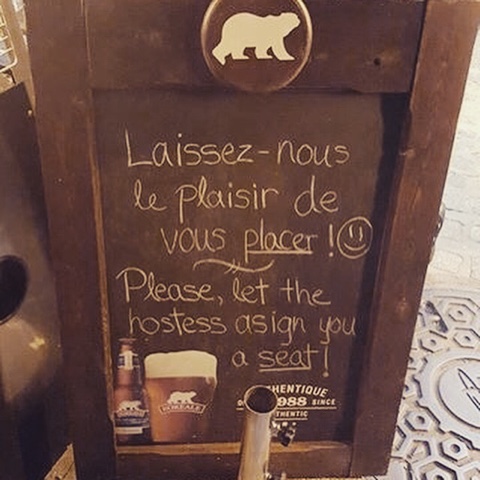 Laissez-nous
le plaisir de
vous placer !
Please, let the
hostess asign you
a seat!
BORÉALE
1988 SINCE